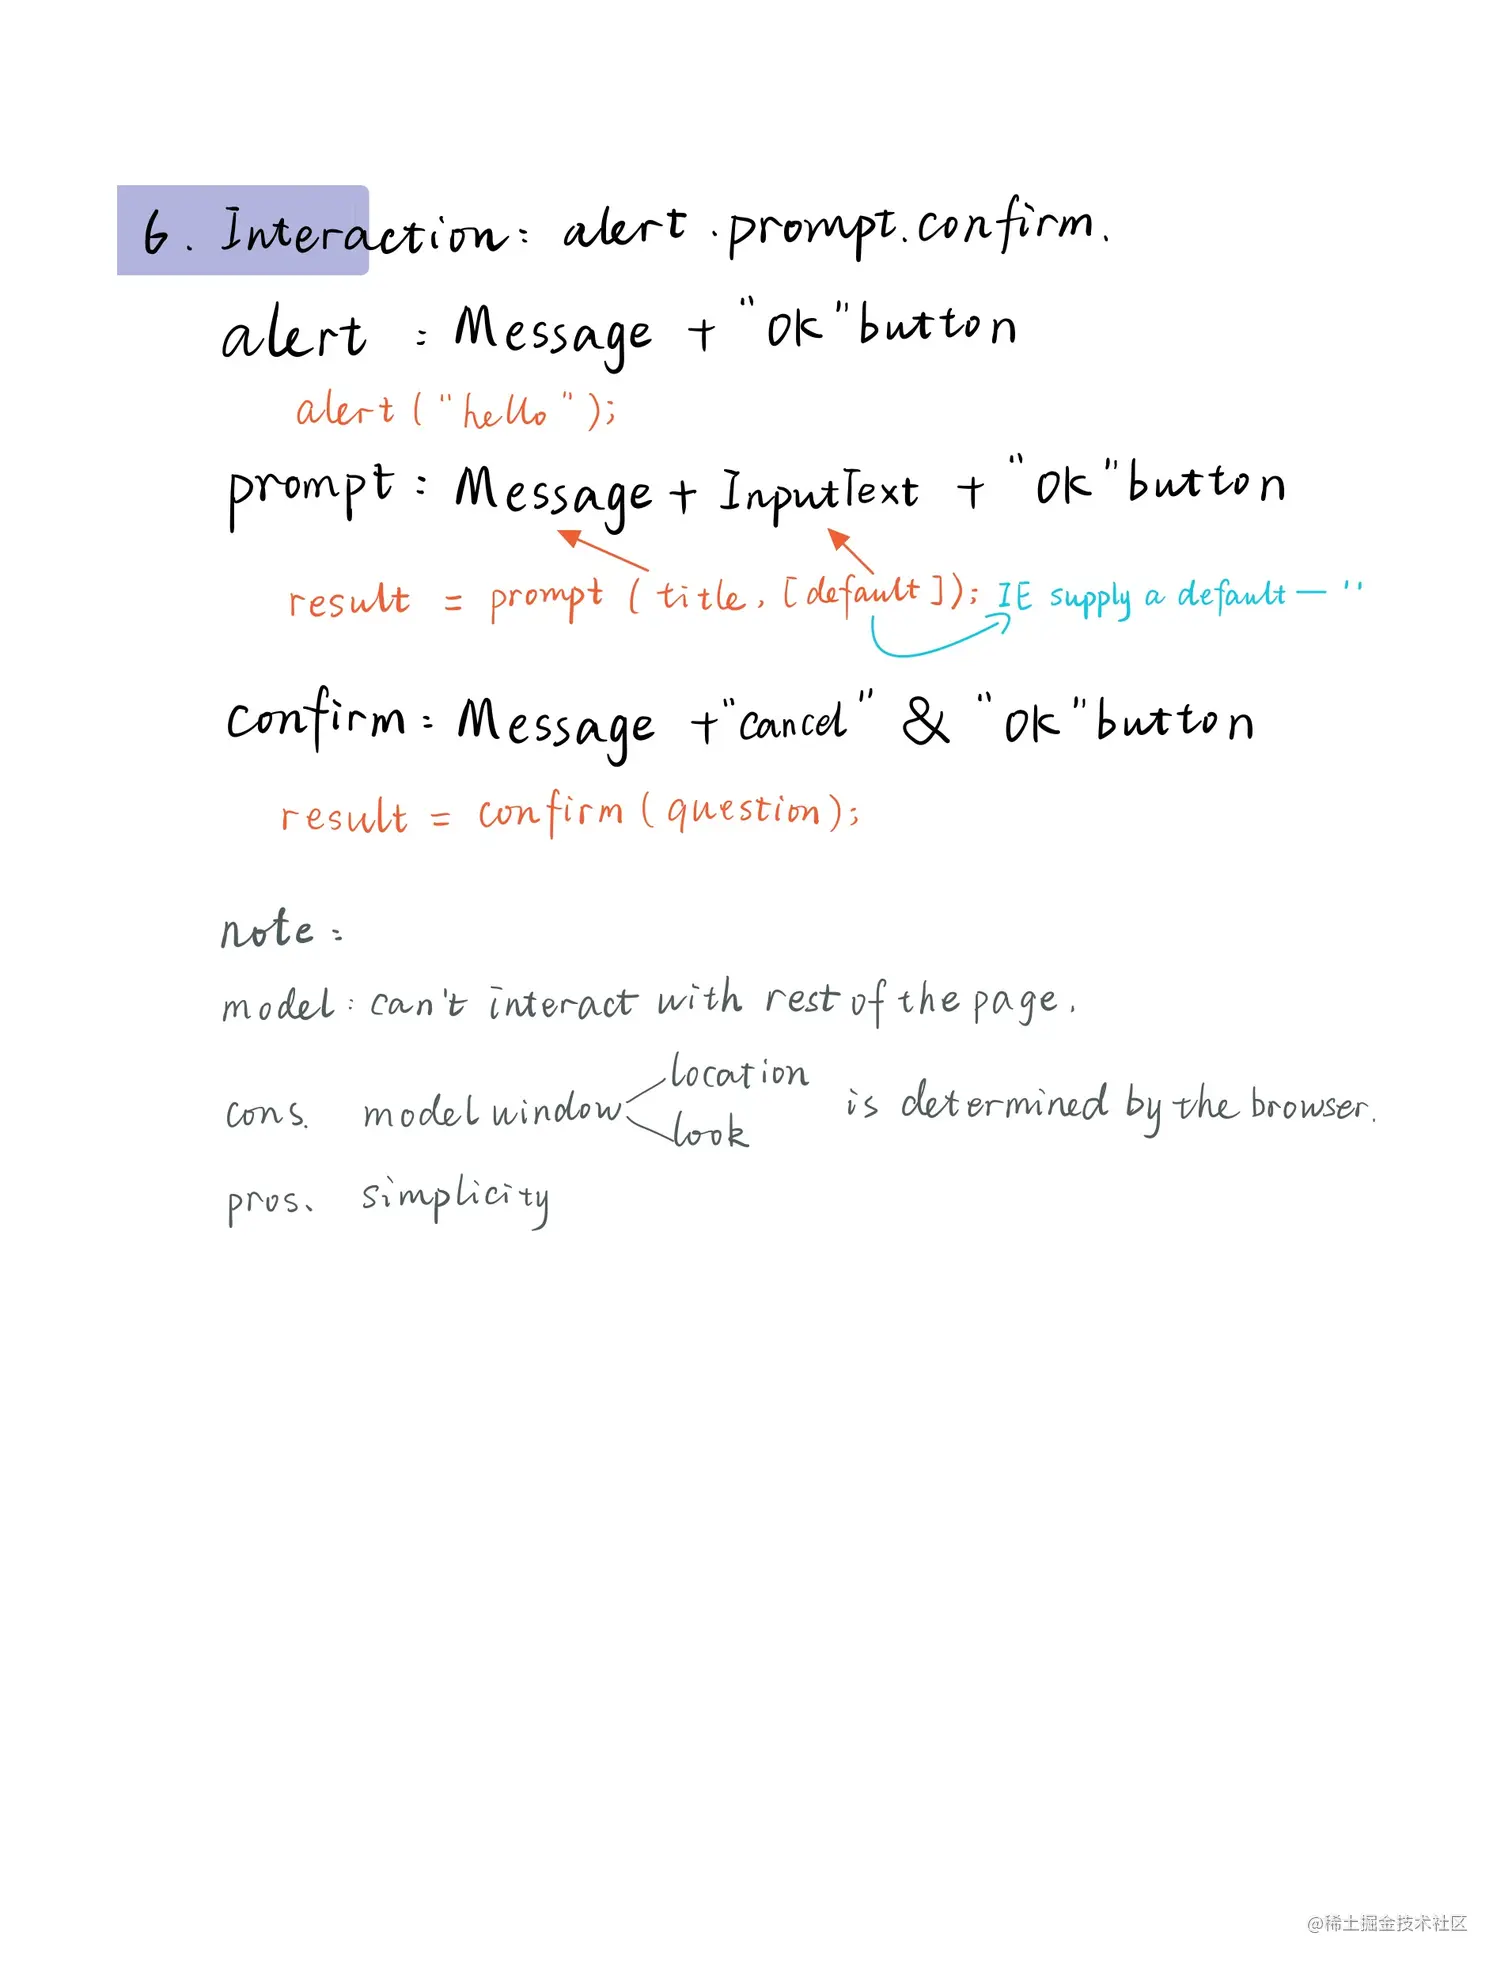 6. Interaction: alert.prompt.confirm.
alert : Message + "ok" button
alert ("hello");
prompt: Message + InputText + "ok" button
result = prompt (title, [default]); IE supply a default — ''
confirm: Message + "cancel" & "ok" button
result = confirm (question);
note:
model: can't interact with rest of the page.
cons. model window location look is determined by the browser.
pros、 simplicity
@稀土掘金技术社区